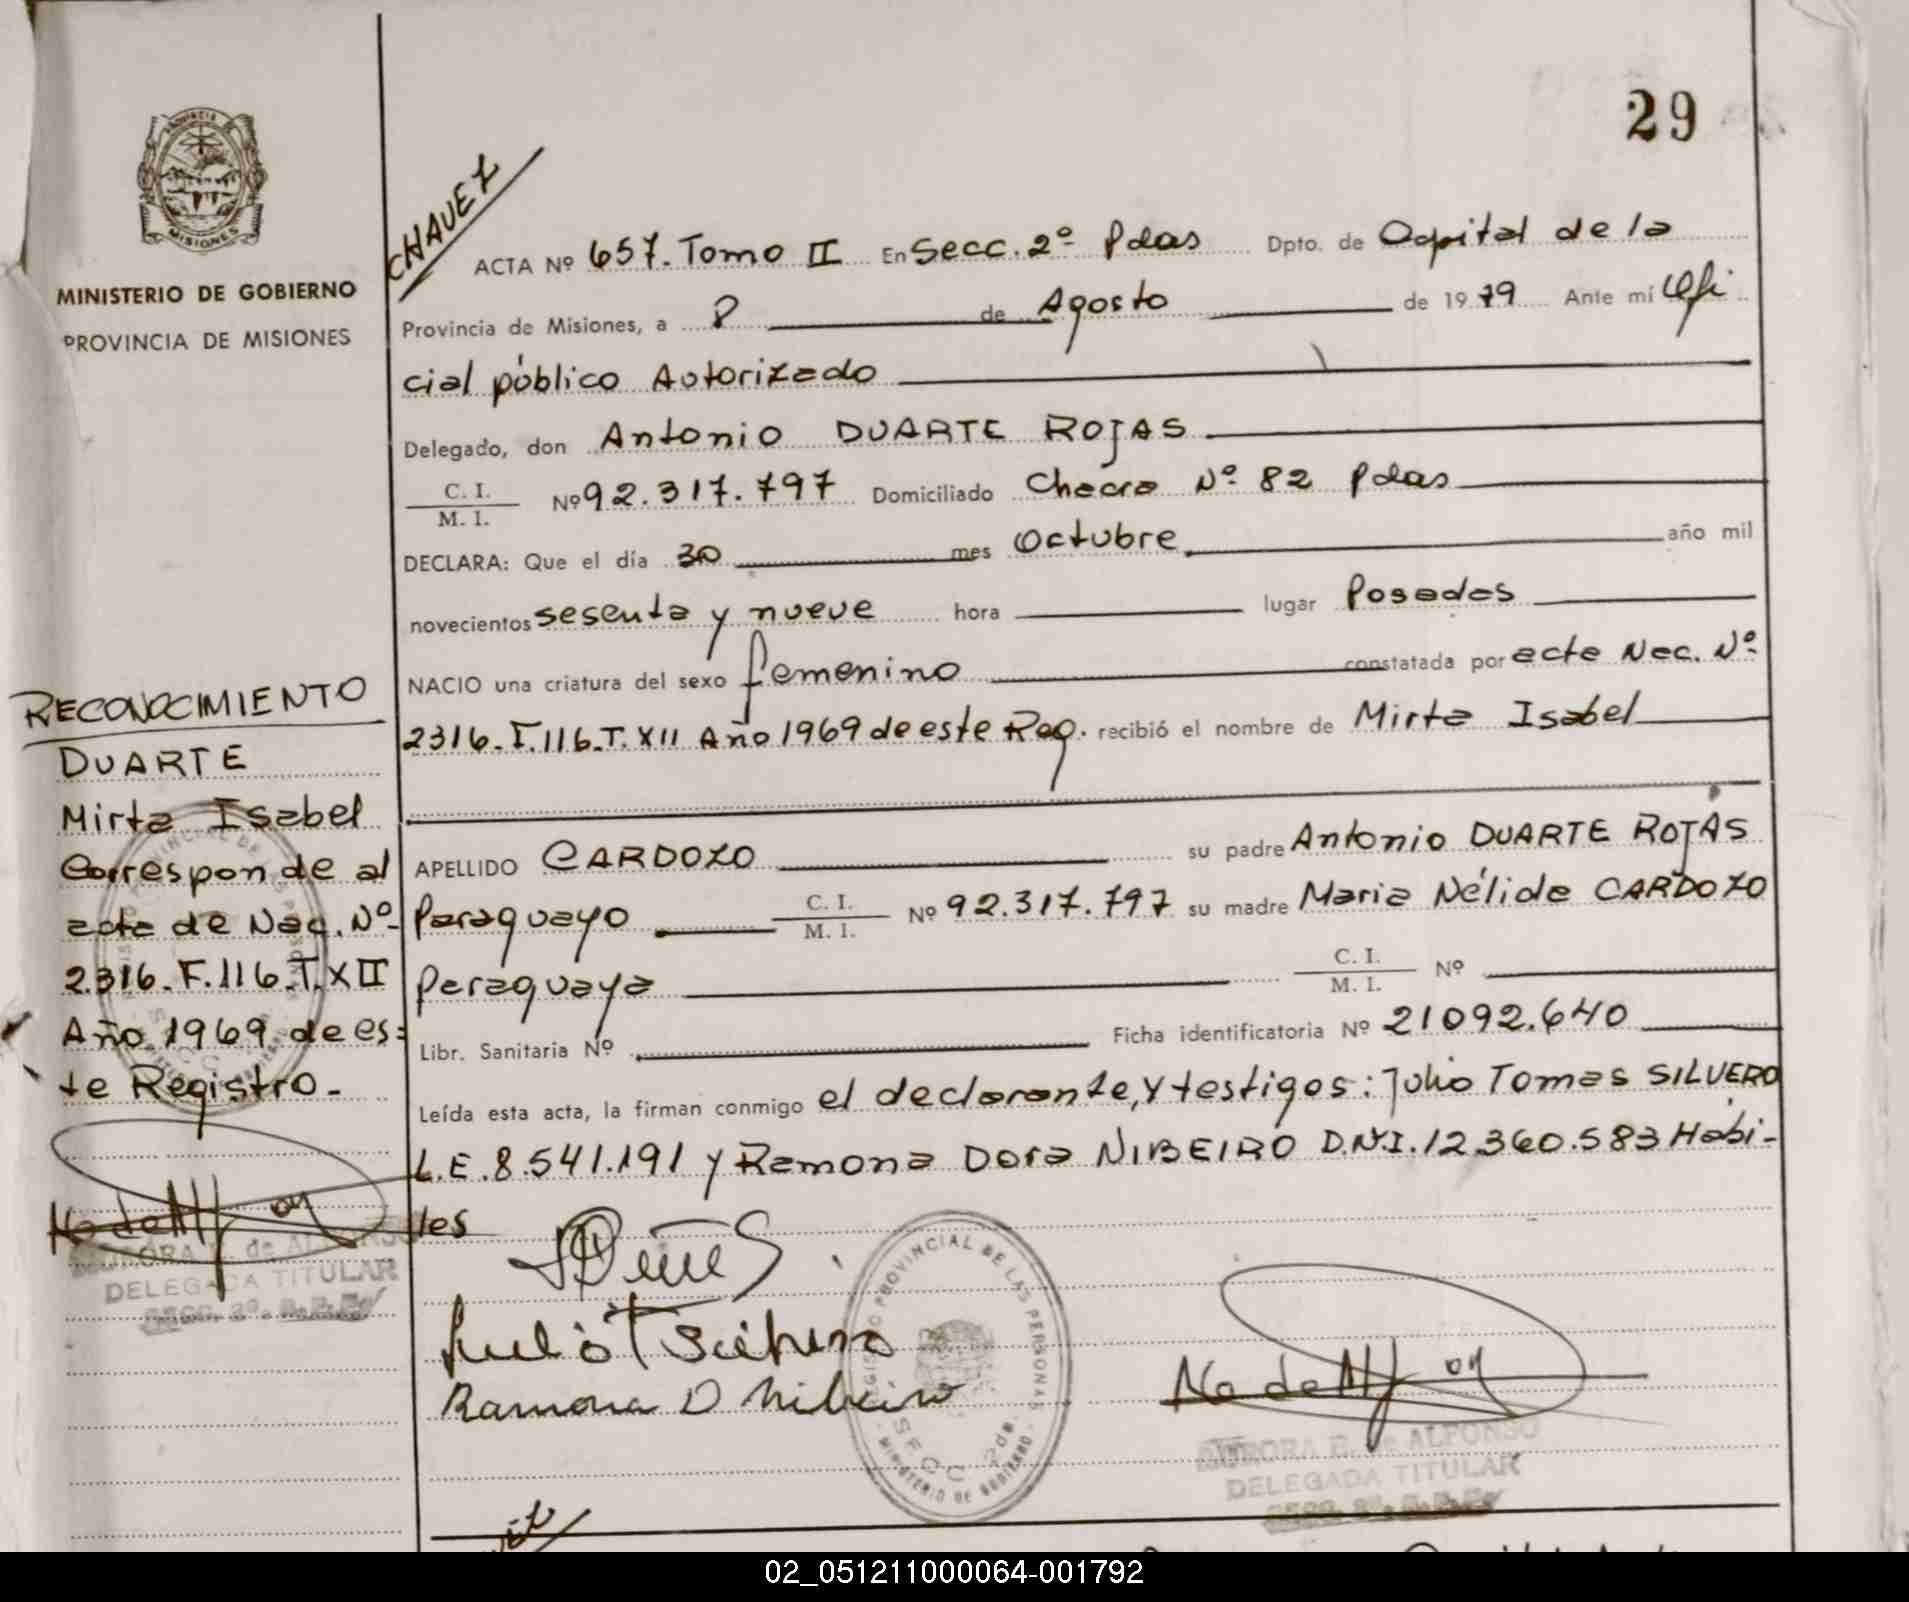 29
PROVINCIA DE
MISIONES
MINISTERIO DE GOBIERNO
PROVINCIA DE MISIONES
CHAVEZ
ACTA Nº 657. Tomo II En Secc. 2º Pdas Dpto. de Capital de la
Provincia de Misiones, a 8 de Agosto de 1979 Ante mí Ofi
cial público Autorizado
Delegado, don Antonio DUARTE ROJAS
C. I.
M. I. Nº 92.317.797 Domiciliado Chacra Nº 82 Pdas
DECLARA: Que el día 30 mes Octubre año mil
novecientos sesenta y nueve hora lugar Posadas
NACIO una criatura del sexo femenino constatada por acta Nac. Nº
2316. F. 116. T. XII Año 1969 de este Reg. recibió el nombre de Mirta Isabel
APELLIDO CARDOZO su padre Antonio DUARTE ROJAS
Paraguayo C. I. M. I. Nº 92.317.797 su madre Maria Nélida CARDOZO
Paraguaya C. I. M. I. Nº
Libr. Sanitaria Nº Ficha identificatoria Nº 21092.640
Leída esta acta, la firman conmigo el declarante, y testigos: Julio Tomas SILVERO
L.E. 8.541.191 y Ramona Dora NIBEIRO D.N.I. 12.360.583 Hábi-
les
Julio T Silvero
Ramona D Nibeiro
REGISTRO PROVINCIAL DE LAS PERSONAS
SECC 2da.
MINISTERIO DE GOBIERNO
AURORA E. de ALFONSO
DELEGADA TITULAR
RECONOCIMIENTO
DUARTE
Mirta Isabel
Corresponde al
acta de Nac. Nº
2316. F. 116. T. XII
Año 1969 de es=
te Registro-
AURORA E. de ALFONSO
DELEGADA TITULAR
02_051211000064-001792